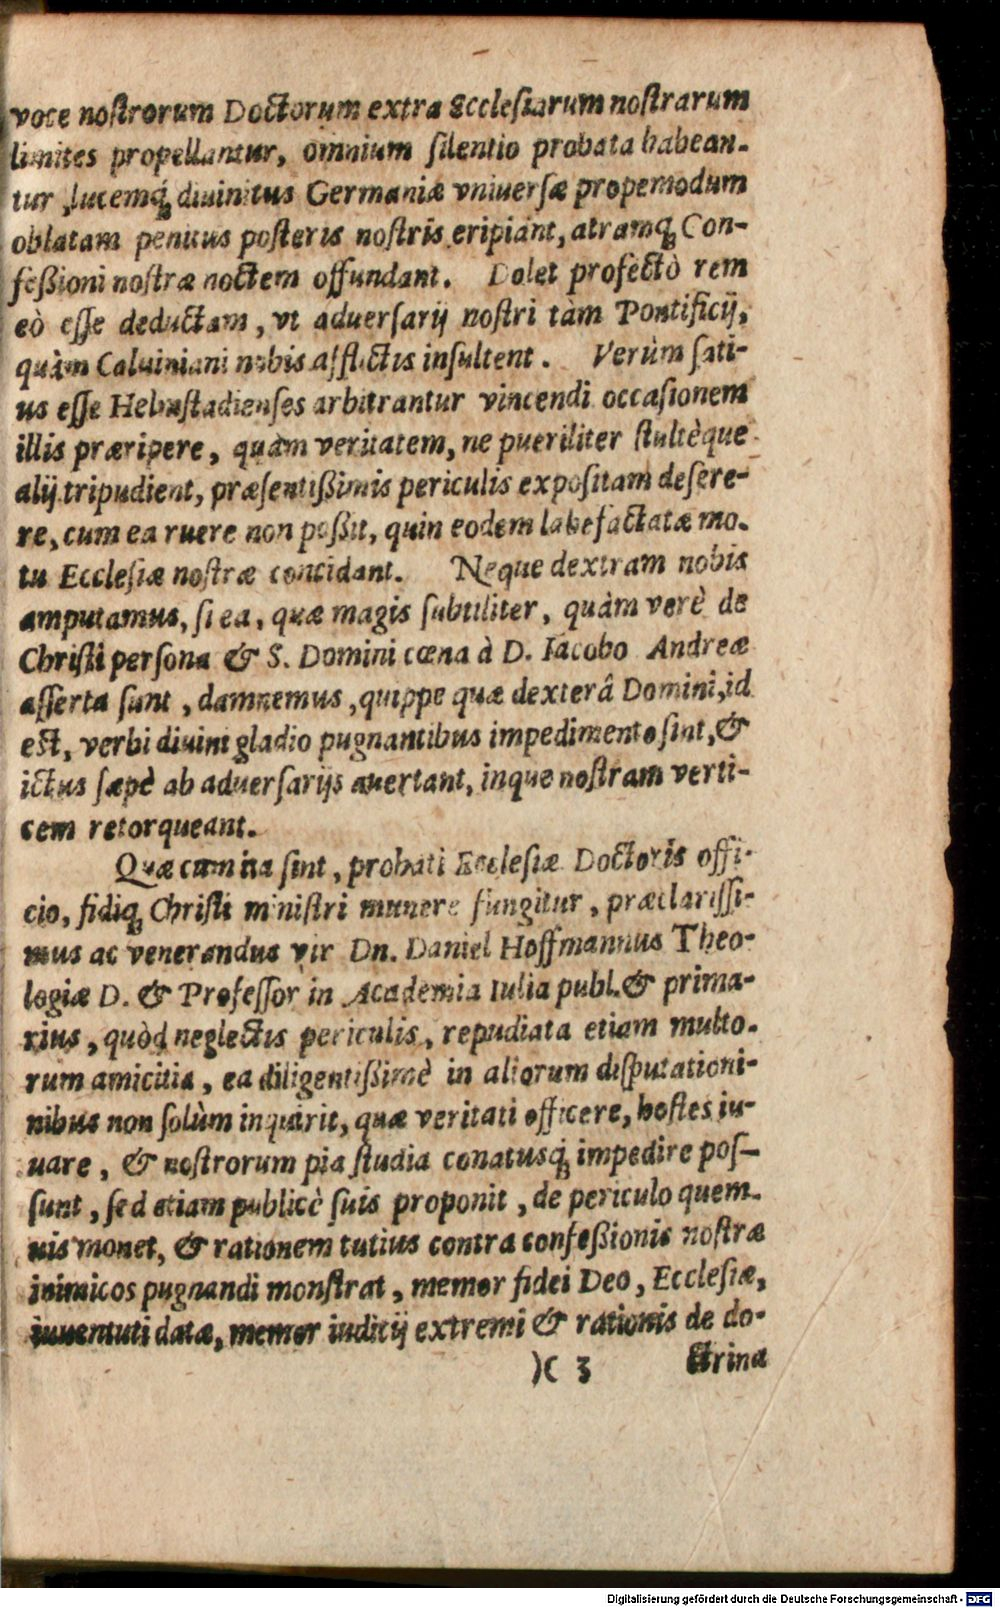 voce nostrorum Doctorum extra Ecclesiarum nostrarum
limites propellantur, omnium silentio probata habean-
tur, lucemq́; diuinitus Germaniæ vniuersæ propemodum
oblatam penitus posteris nostris eripiant, atramq́; Con-
feßioni nostræ noctem offundant. Dolet profectò rem
eò esse deductam, vt aduersarij nostri tàm Pontificij,
quàm Caluiniani nobis afflictis insultent. Verùm sati-
us esse Helmstadienses arbitrantur vincendi occasionem
illis præripere, quàm veritatem, ne pueriliter stultèque
alij tripudient, præsentißimis periculis expositam desere-
re, cum ea ruere non poßit, quin eodem labefactatæ mo-
tu Ecclesiæ nostræ concidant. Neque dextram nobis
amputamus, si ea, quæ magis subtiliter, quàm verè de
Christi persona & S. Domini cœna à D. Iacobo Andreæ
asserta sunt, damnemus, quippe quæ dexterâ Domini, id
est, verbi diuini gladio pugnantibus impedimento sint, &
ictus sæpè ab aduersarijs auertant, inque nostram verti-
cem retorqueant.
Quæ cum ita sint, probati Ecclesiæ Doctoris offi-
cio, fidiq́; Christi ministri munere fungitur, præclarissi-
mus ac venerandus vir Dn. Daniel Hoffmannus Theo-
logiæ D. & Professor in Academia Iulia publ. & prima-
rius, quòd neglectis periculis, repudiata etiam multo-
rum amicitia, ea diligentißimè in aliorum disputationi-
nibus non solùm inquirit, quæ veritati officere, hostes iu-
uare, & nostrorum pia studia conatusq́; impedire pos-
sunt, sed etiam publicè suis proponit, de periculo quem-
uis monet, & rationem tutius contra confeßionis nostræ
inimicos pugnandi monstrat, memor fidei Deo, Ecclesiæ,
iuuentuti datæ, memor iudicij extremi & rationis de do-
)( 3 ctrina
Digitalisierung gefördert durch die Deutsche Forschungsgemeinschaft - DFG